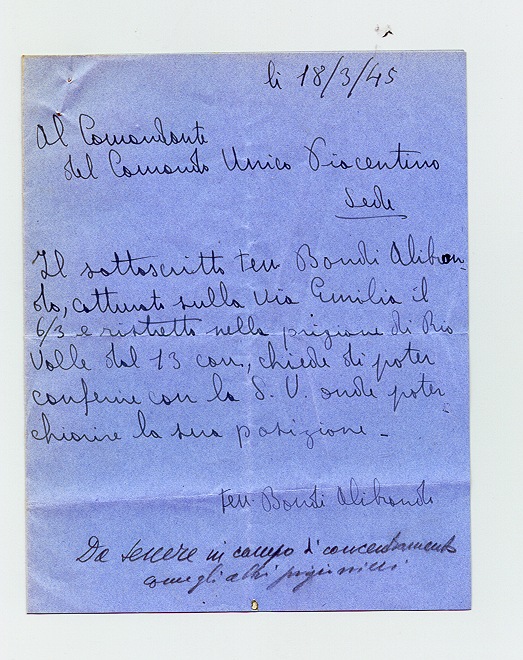 li 18/3/45
Al Comandante
del Comando Unico Piacentino
Sede
Il sottoscritto ten. Bondi Alibran-
do, catturato sulla Via Emilia il
6/3 e ristretto nella prigione di Rio
Valle dal 13 corr., chiede di poter
conferire con la S. V. onde poter
chiarire la sua posizione -
ten. Bondi Alibrando
Da tenere in campo d'concentramento
come gli altri prigionieri